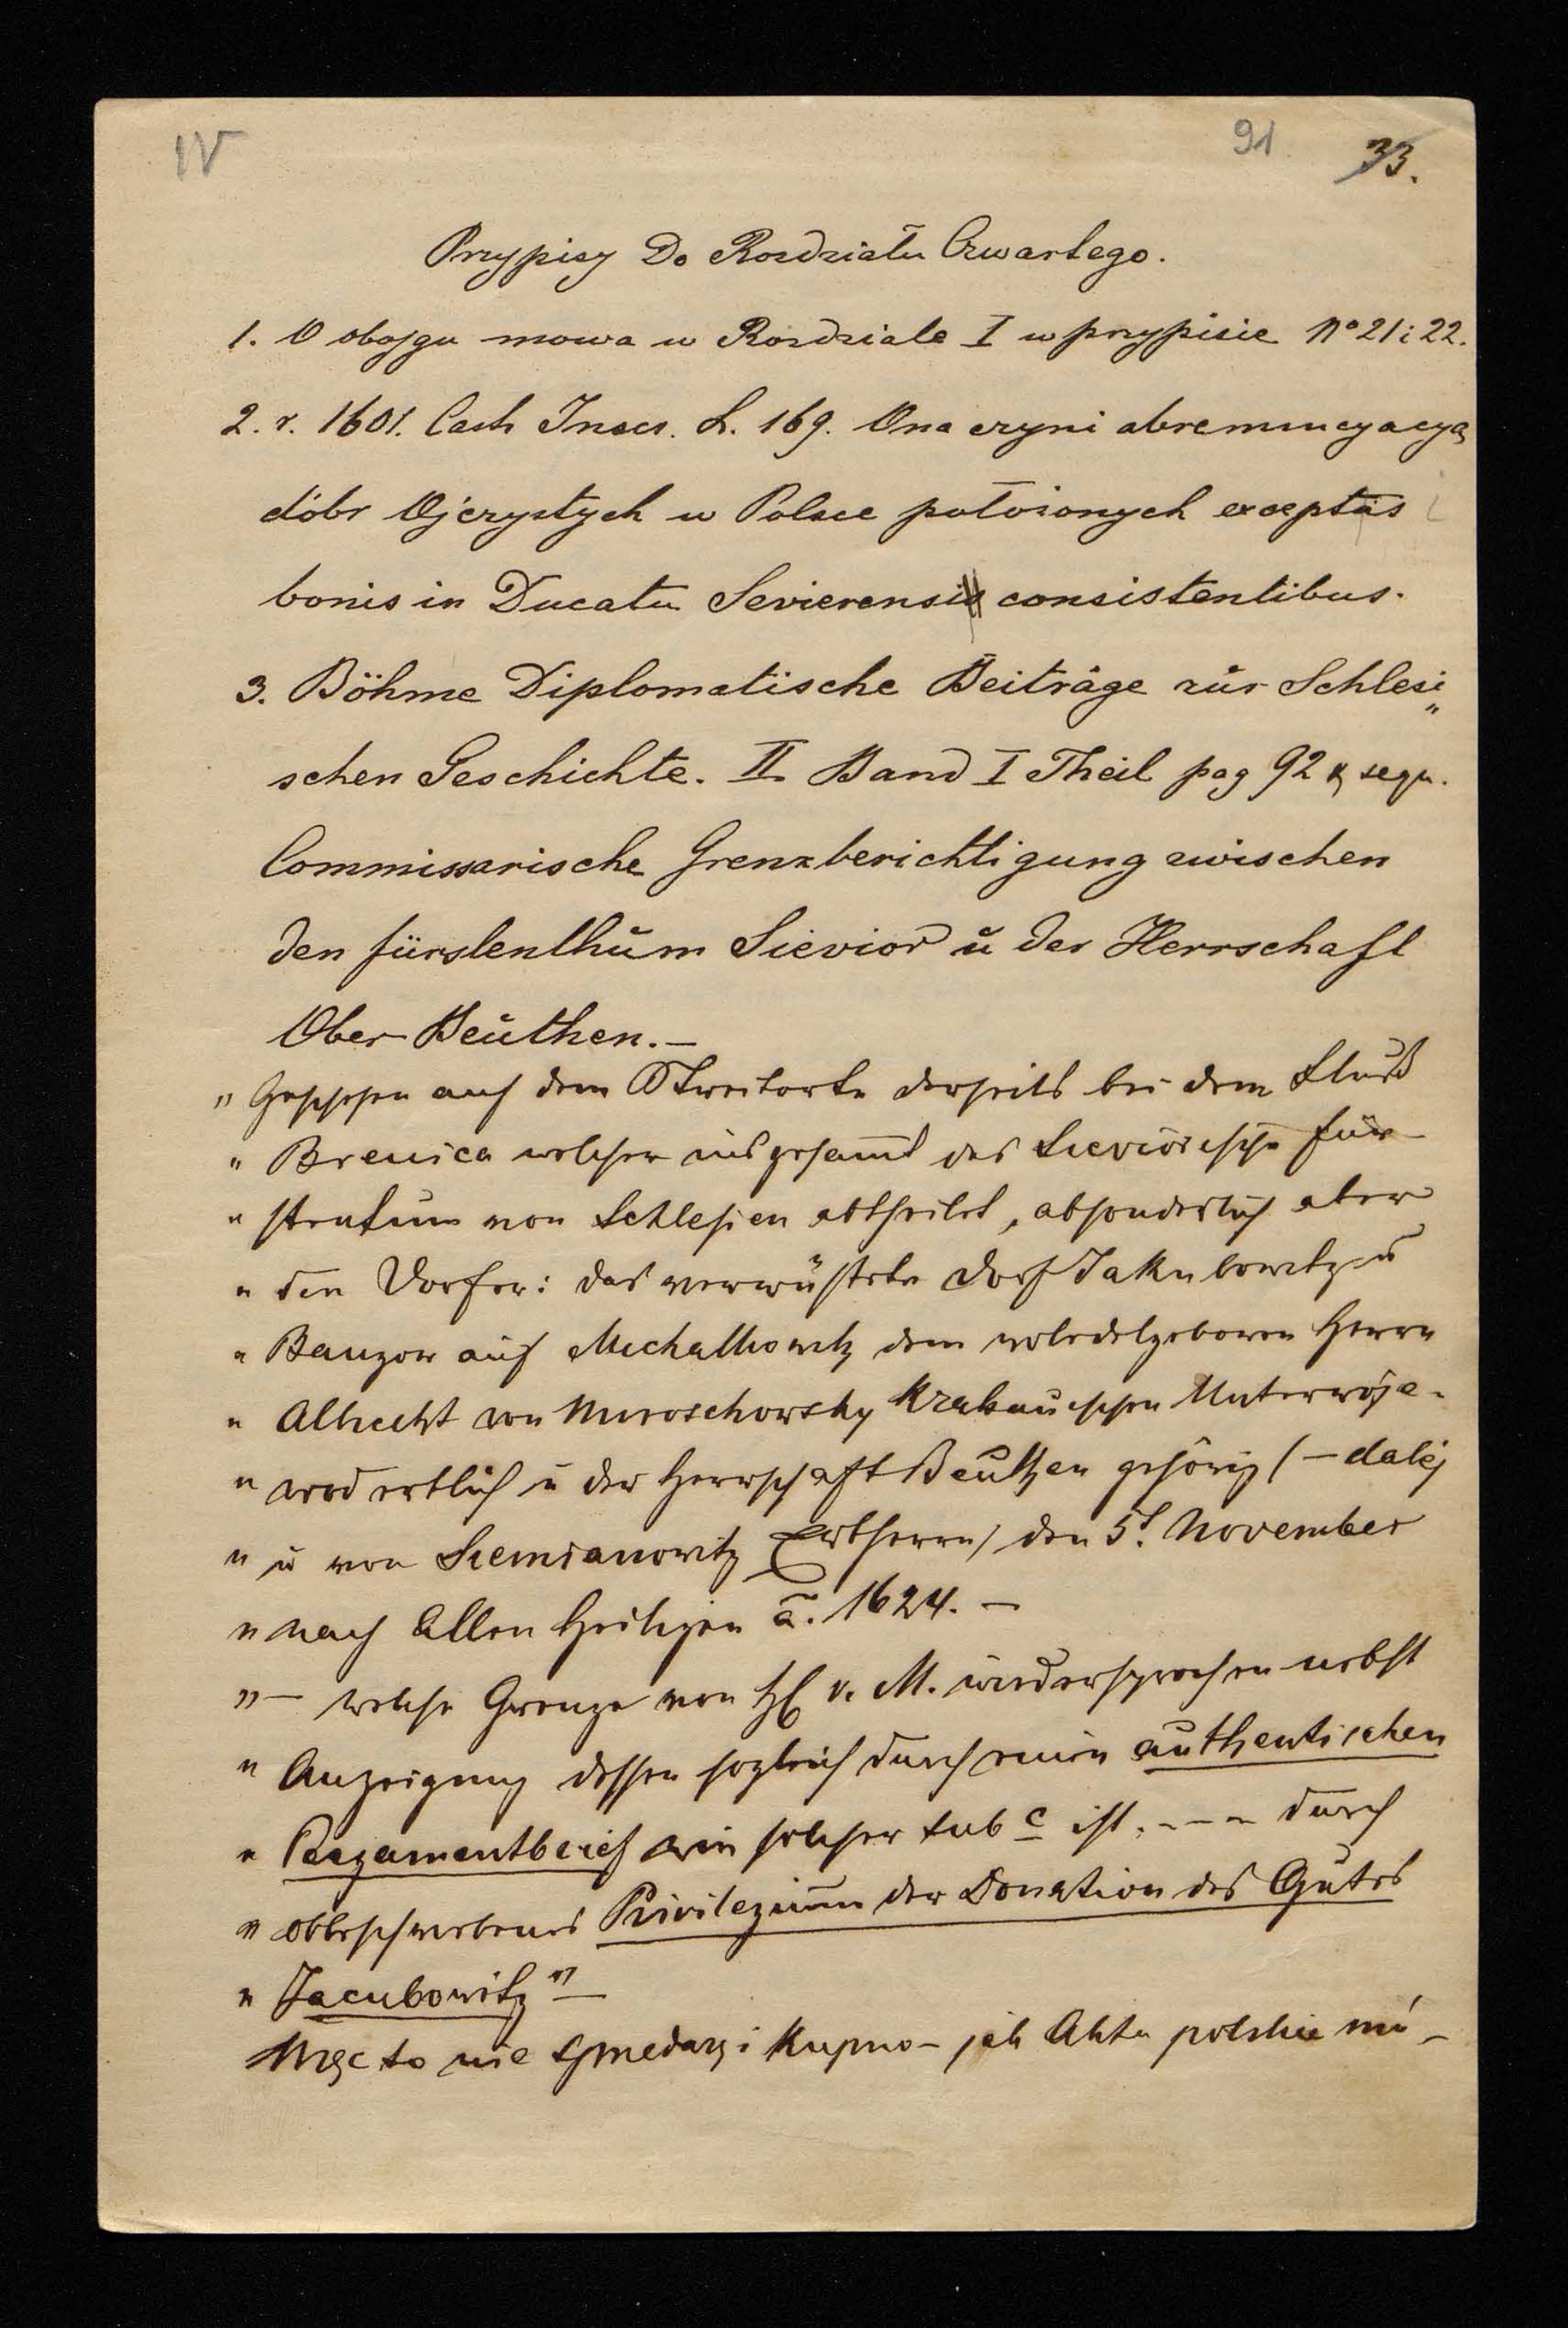 IV
91
33.
Przypisy Do Rozdziału Czwartego.
1. O obojgu mowa w Rozdziale I w przypisie No 21 i 22.
2. r. 1601. Cast. Inscr. L. 169. Ona czyni abrenuncyacyą
dóbr Ojczystych w Polsce położonych exceptis
bonis in Ducatu Sevierensi consistentibus.
3. Böhme Diplomatische Beiträge zur Schlesi„
schen Geschichte. II Band I Theil pag 92 & sequ.
Commissarische Grenzberichtigung zwischen
den fürstenthum Sievior u der Herrschaft
Ober Beuthen.—
„ Geschehen auf dem Streitorte derseits bei dem Fluß
„ Brenica welcher insgesamt das Sieviorische Für-
„ stentum von Schlesien abtheilet, absonderlich aber
„ den Dorfer: das verwüstete Dorf Jakubowitz u
„ Bauzow auf Michalkowitz dem woledelgeboren Herrn
„ Albrecht von Mieroschowsky Krakauischen Unterwoje-
„ wod erblich u der Herrschaft Beuthen gehörig (— daléj
„ u von Siemianowitz Erbherrn) den 5t. November
„ nach Allen Heiligen a. 1624. —
„— welche Grenze von H v. M. wiedersprochen nebst
„ Anzeigung dessen sogleich durch einen authentischen
„ Pergamentbrief wie solcher sub c ist. --- durch
„ obbeschriebenes Privilegium der Donation des Gutes
„ Jacubowitz" —
Więc to nie sprzedaż i kupno - jak Akta polskie mó-